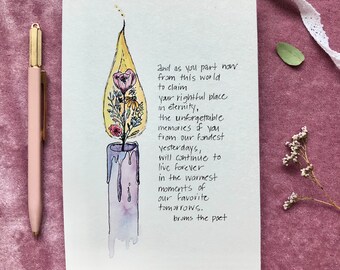 and as you part now
from this world
to claim
your rightful place
in eternity,
the unforgettable
memories of you
from our fondest
yesterdays,
will continue to
live forever
in the warmest
moments of
our favorite
tomorrows.
brams the poet